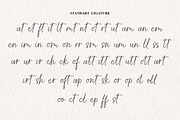 STANDART LIGATURE
at et ft it lt mt nt ot rt ut am an em
en im in om on rr sm sn um un ll ss tt
ar ur ir ch if ck att itt ett utt ott art
irt sh er oft ap ont sk or op el oll
oo ct cl ep ff st